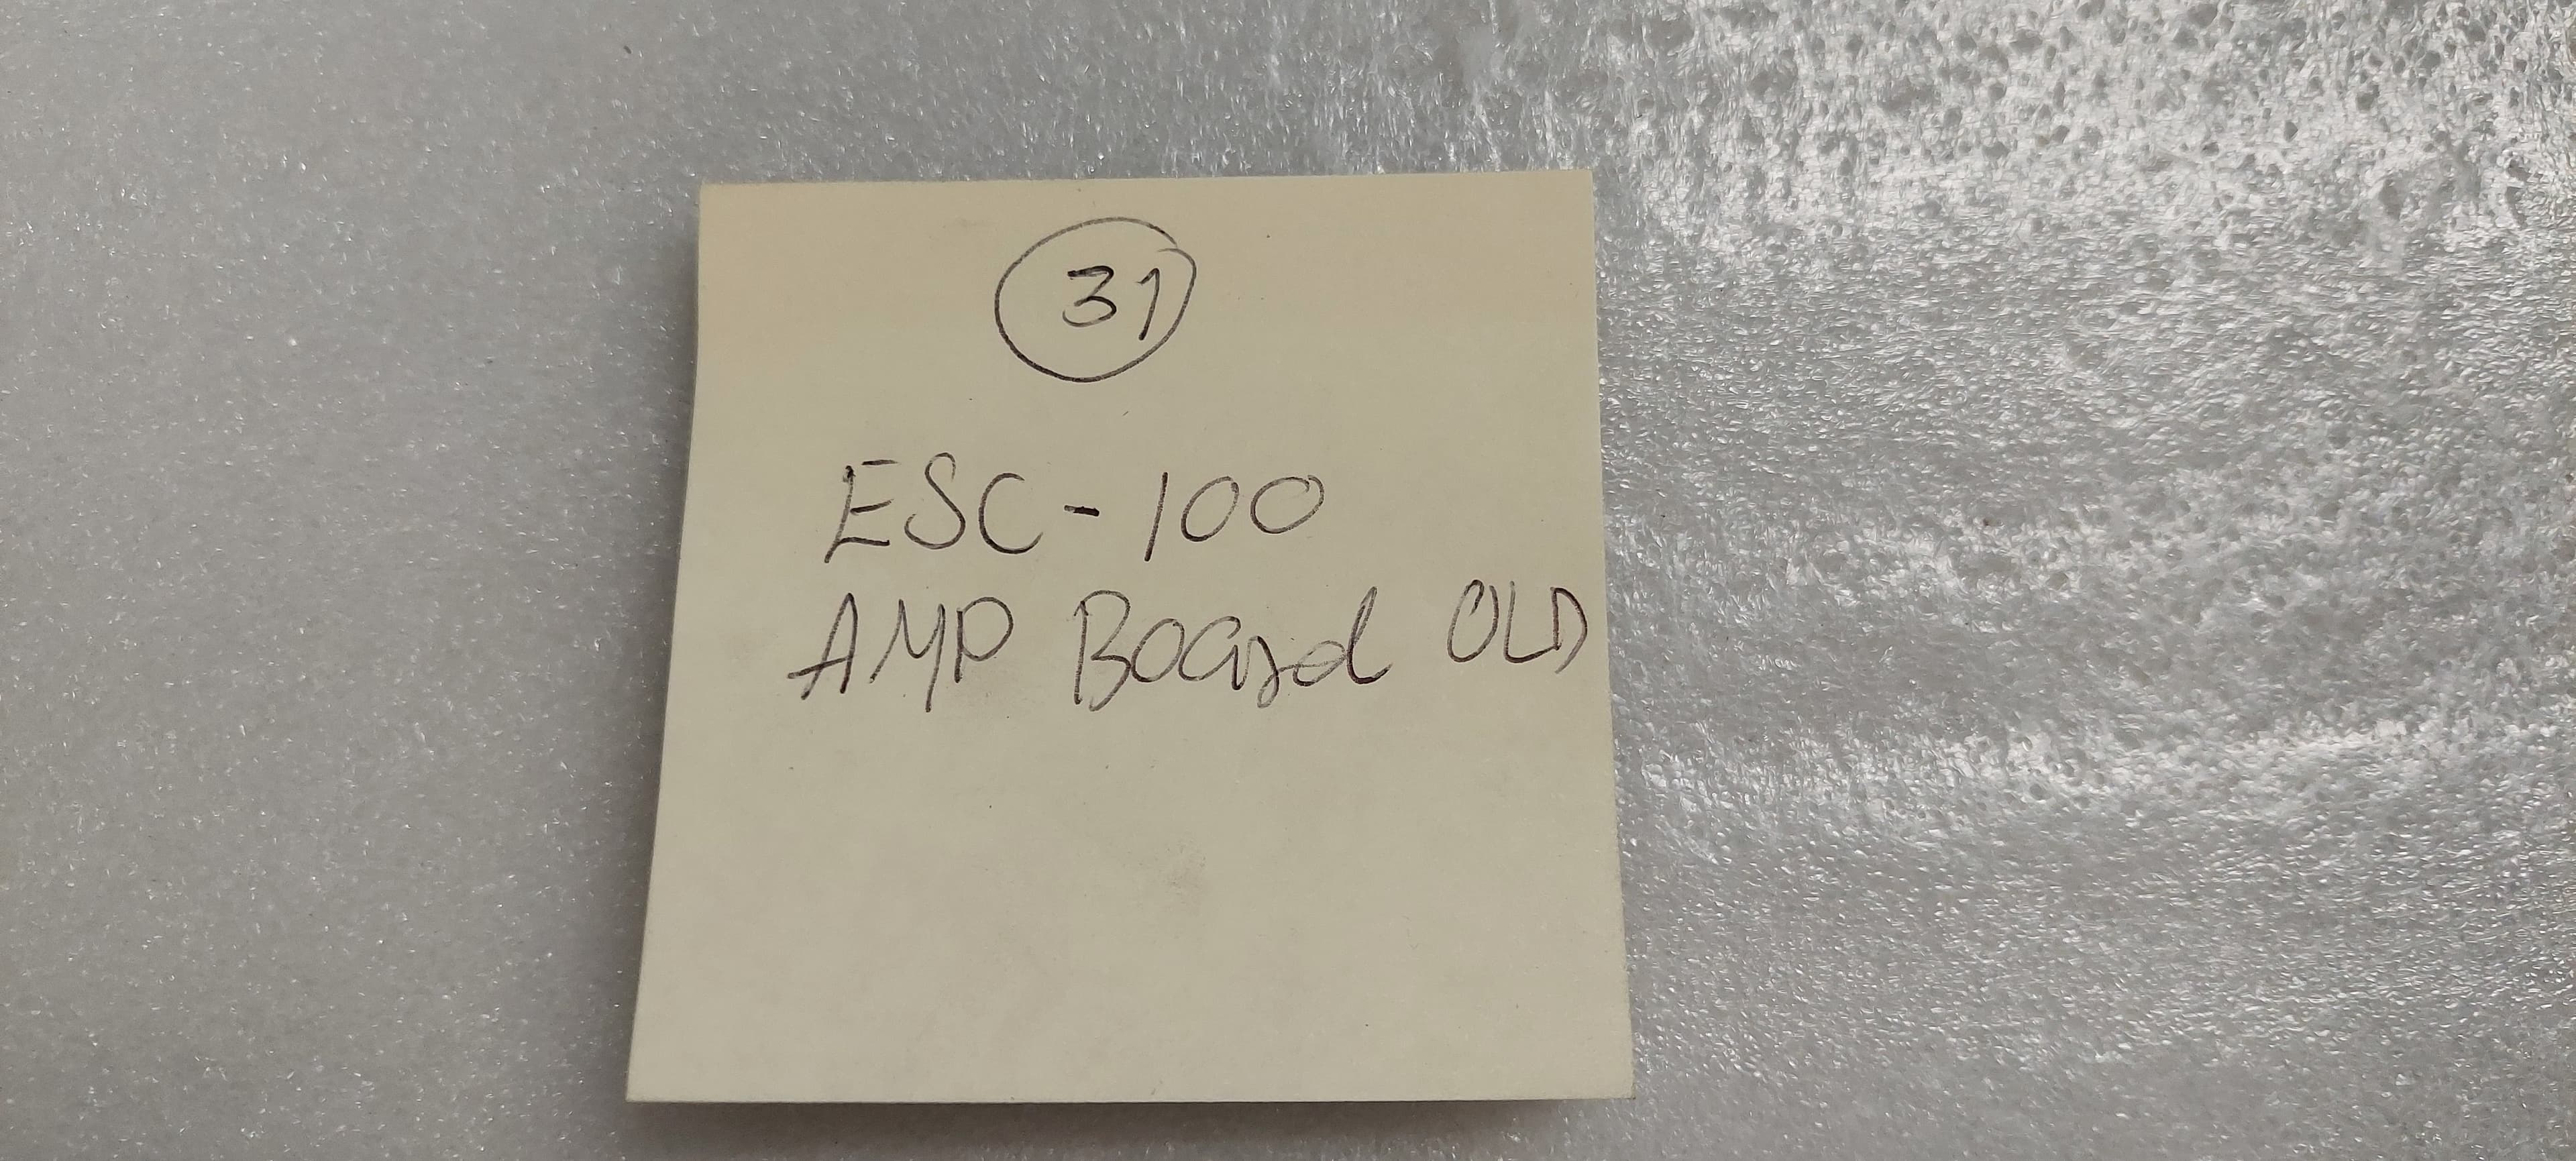 31
ESC-100
AMP Board OLD